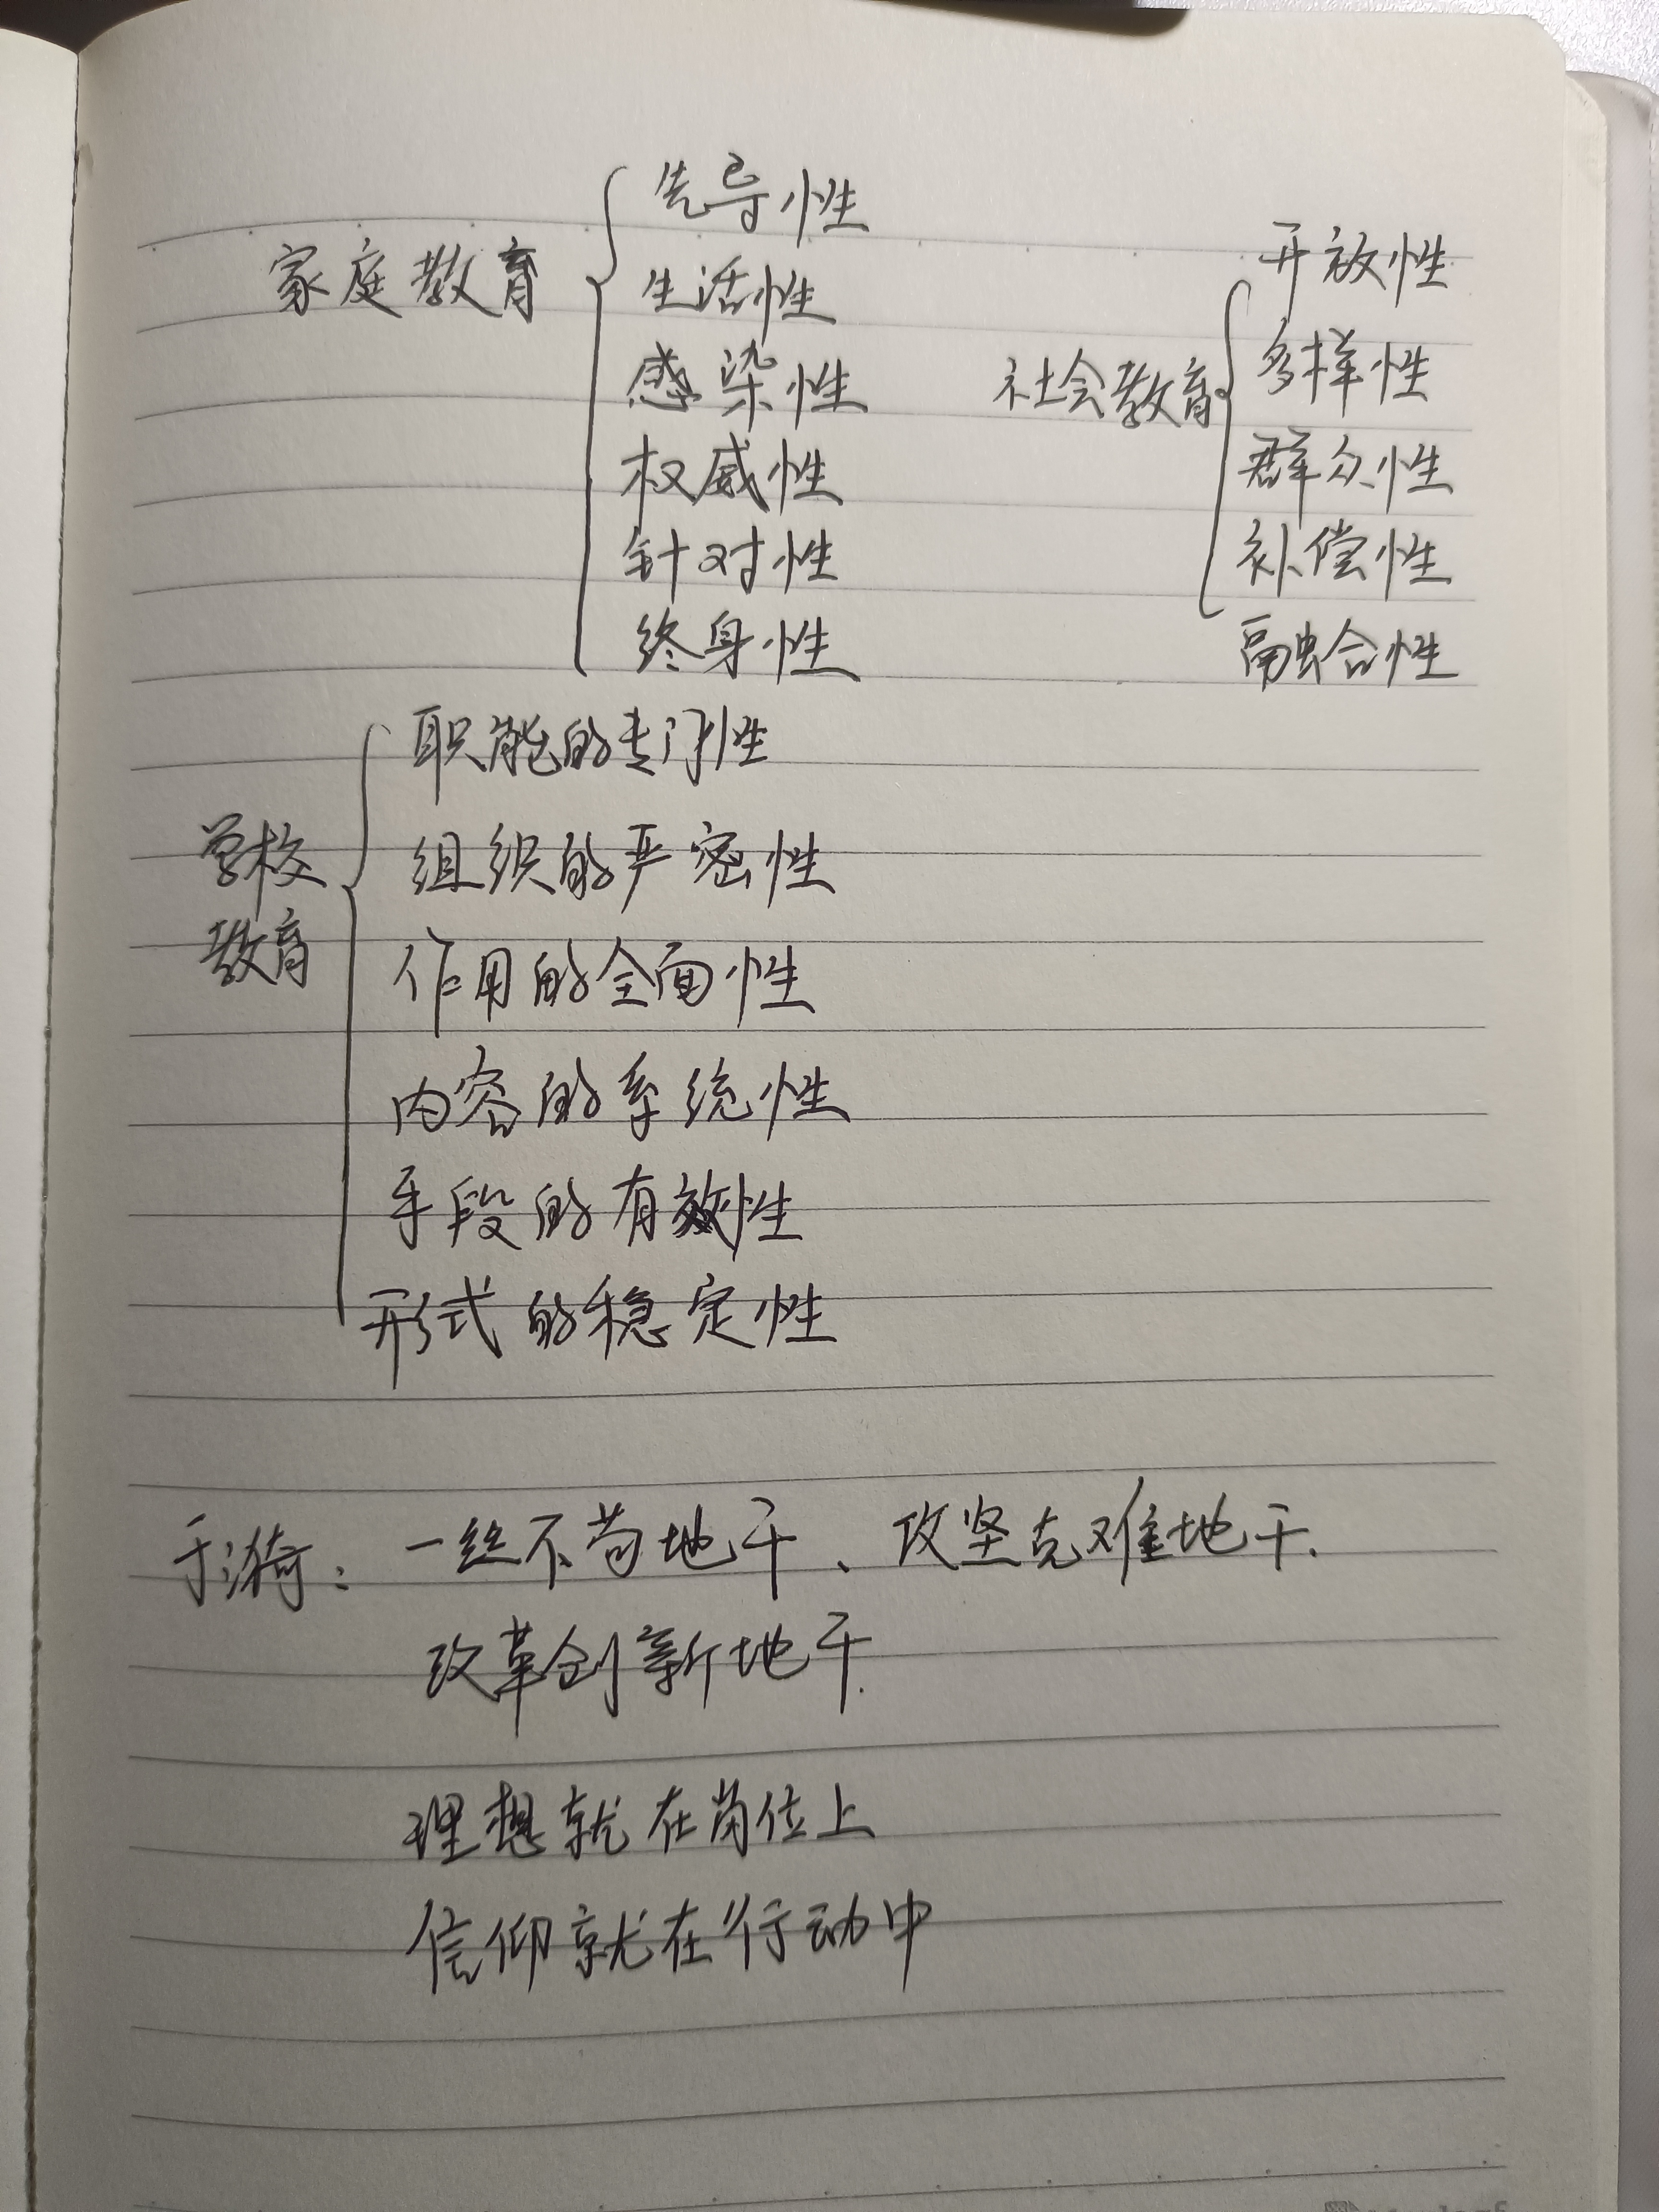 家庭教育
先导性
生活性
感染性
权威性
针对性
终身性
社会教育
开放性
多样性
群众性
补偿性
融合性
学校
教育
职能的专门性
组织的严密性
作用的全面性
内容的系统性
手段的有效性
形式的稳定性
于漪：一丝不苟地干、攻坚克难地干.
改革创新地干.
理想就在岗位上
信仰就在行动中